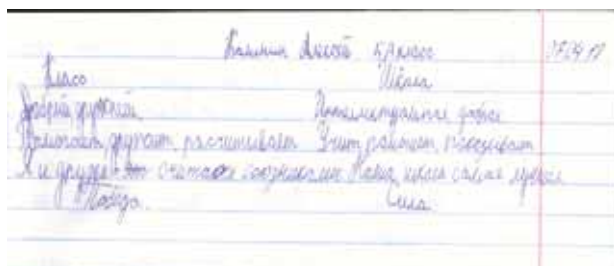 Калинин Алексей 5А класс 17.04.17
Класс Школа
Добрый дружный Интеллектуальная, добрая
Помогает, дружит, расчитывает Учит, работает, показывает
Я и друзья - это считаося союзниками Наша школа самая лучшая
Победа. Сила.